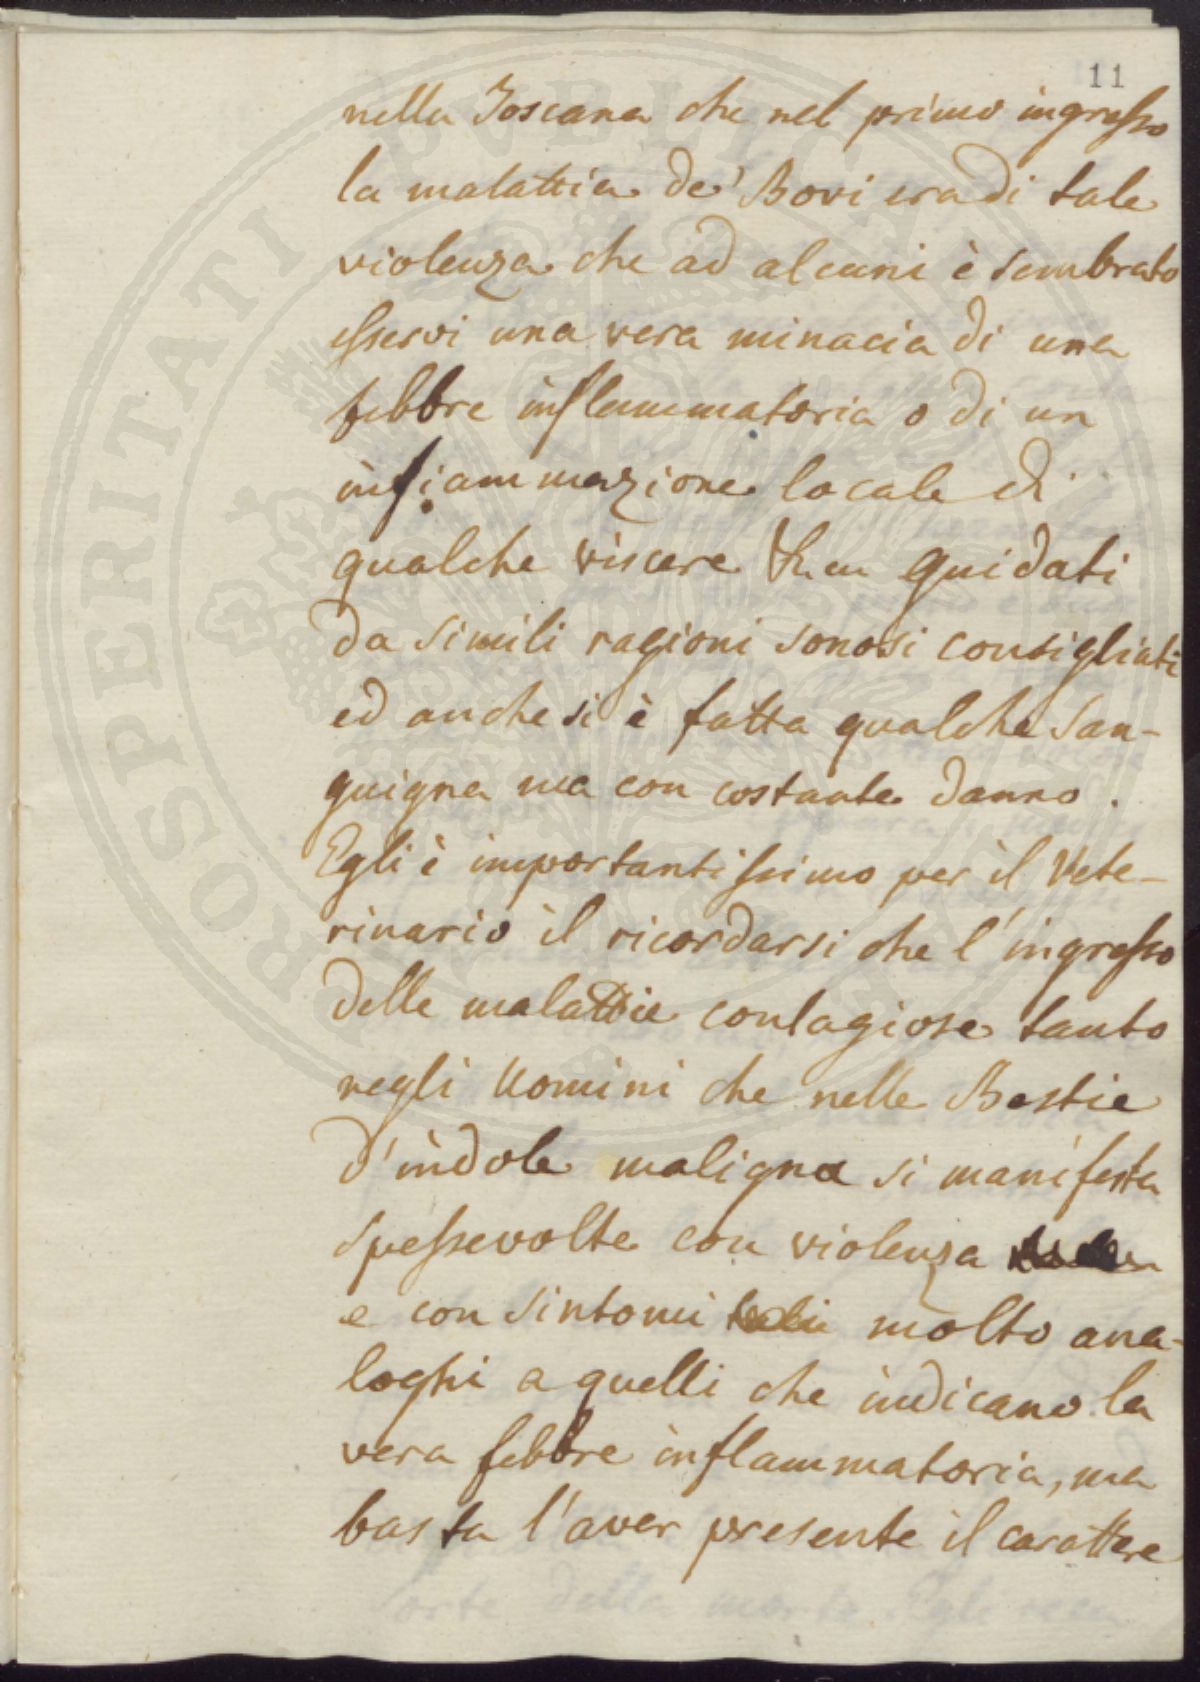 11
nella Toscana che nel primo ingresso
la malattia de' Bovi era di tale
violenza che ad alcuni è sembrato
esservi una vera minacia di una
febbre inflammatoria o di un
infiammazione locale di
qualche viscere guidati
da simili ragioni sonosi consigliati
ed anche si è fatta qualche san-
guigna ma con costante danno.
Egli è importantissimo per il Vete-
rinario il ricordarsi che l'ingresso
delle malattie contagiose tanto
negli Uomini che nelle Bestie
d'indole maligna si manifesta
spessevolte con violenza
e con sintomi molto ana-
loghi a quelli che indicano la
vera febbre inflammatoria, ma
basta l'aver presente il carattere
PROSPERITATI PUBLICAE